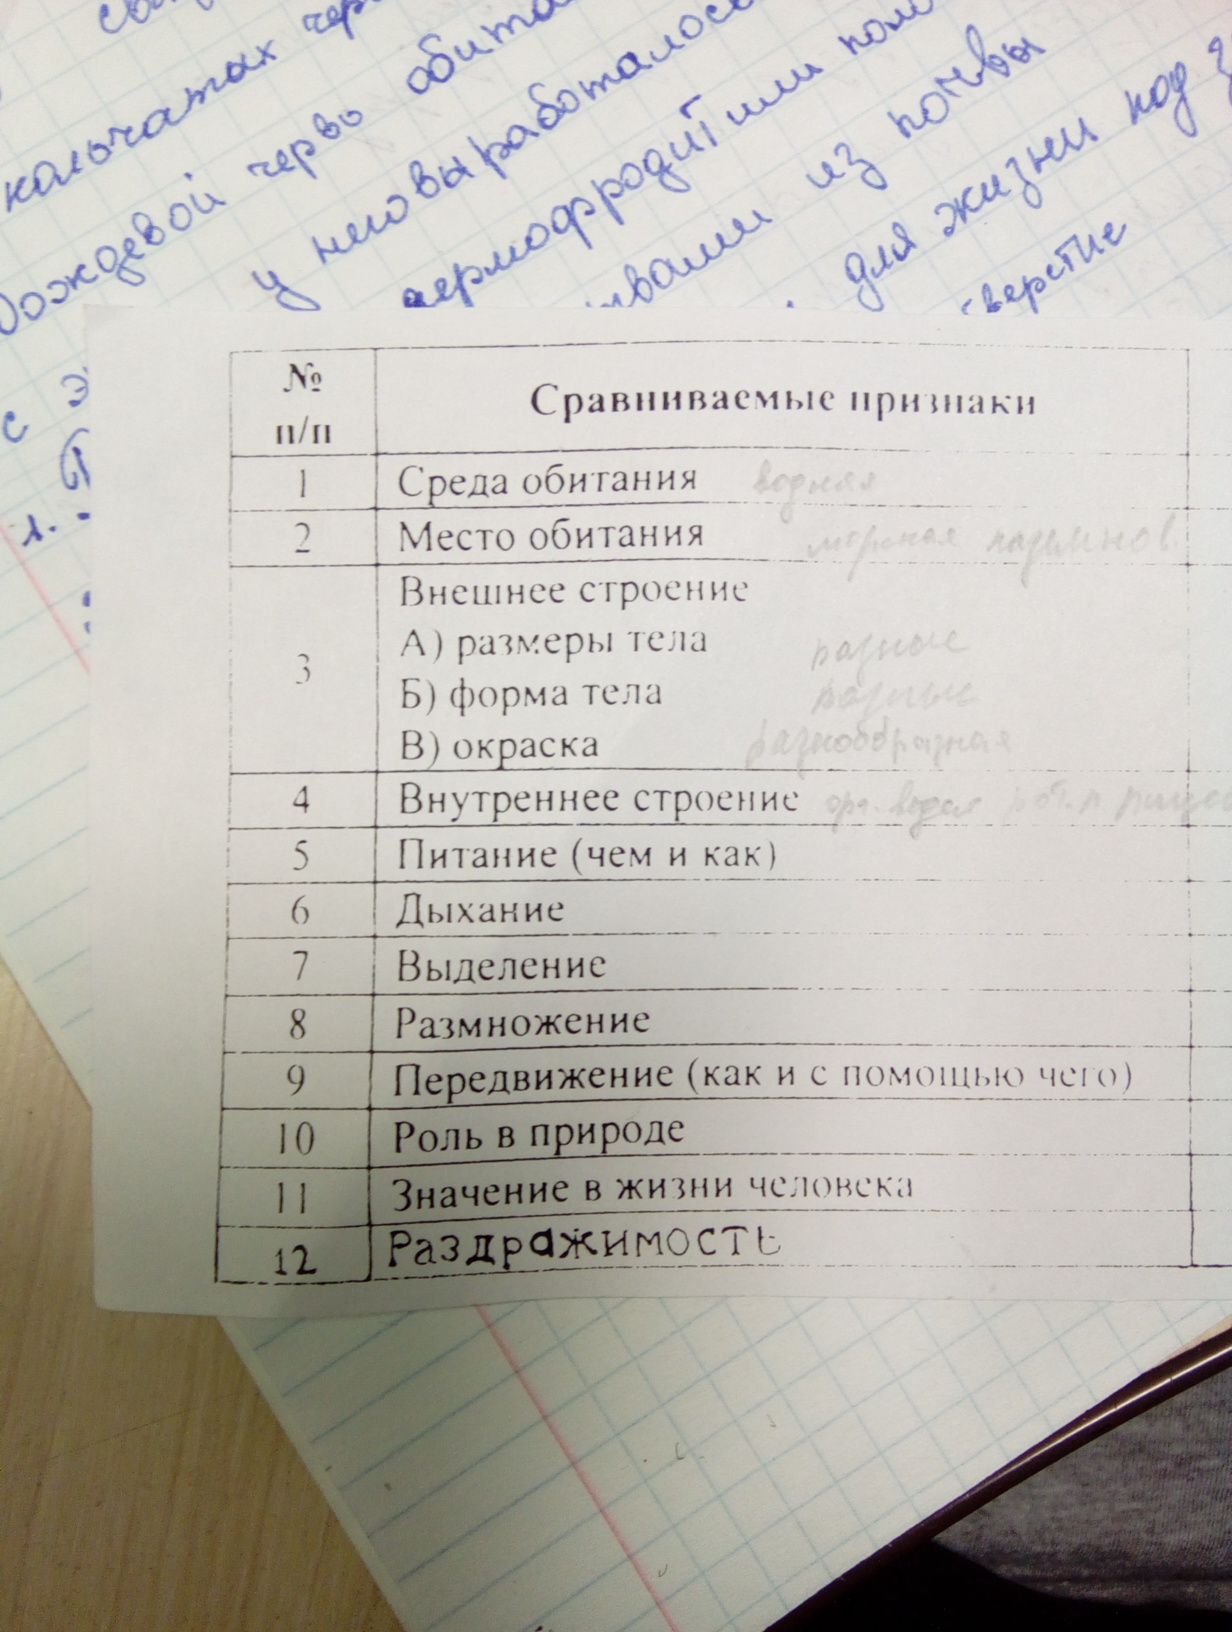 кольчатых
Дождевой червь
у него выработалось
гермофродит или
из почвы
для жизни под
с
№
п/п
Сравниваемые признаки
1 Среда обитания водная
2 Место обитания
3
Внешнее строение
А) размеры тела разные
Б) форма тела разные
В) окраска разнообразная
4 Внутреннее строение
5 Питание (чем и как)
6 Дыхание
7 Выделение
8 Размножение
9 Передвижение (как и с помощью чего)
10 Роль в природе
11 Значение в жизни человека
12 Раздражимость